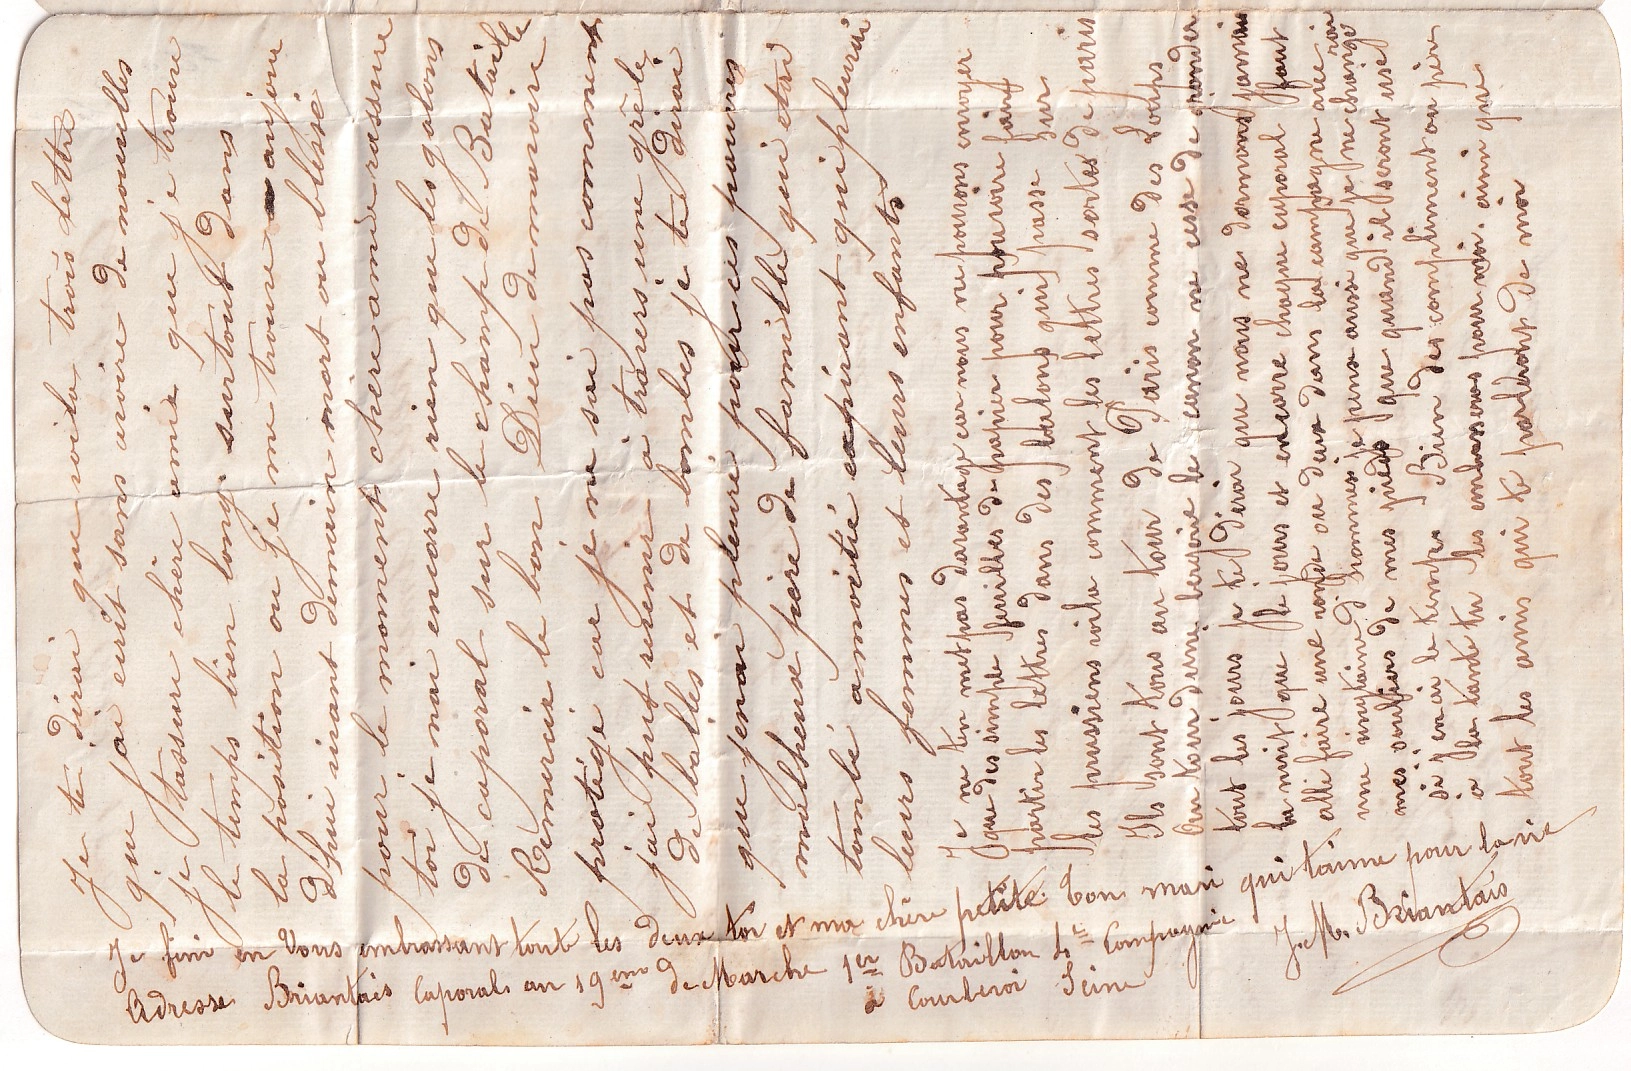 Je te dirai que voila trois lettre
que jai ecrit sans avoire de nouvelles
je tassure chère amie que je trouve
le temps bien long surtout dans
la position ou je me trouve aujour
d'hui vivant demain mort ou blessé
pour le moment chere amie rassure
toi je nai encore rien que les galons
de caporal sur le champ de Bataille
Rémercie le bon Dieu de mavoire
protégé car je ne sai pas comment
jai put revenir a travers une grêle
de balles et de bombes je te dirai
que jenai pleuré pour ces pauvres
malheureux père de famille qui etai
tombé a moitié expirant qui pleurai
leurs femmes et leurs enfants
Je ne ten met pas davantage car nous ne pouvons envoyer
que des simple feuilles de papier pour pouvoire faire
partir les lettres dans des balons qui passe sur
les prussiens voila comment les lettres sortes de paris
Ils sont tous au tour de Paris comme des Loups
au tour d'une bergerie le canon ne cesse de gronder
tout les jours je te dirai que nous ne dormons jamais
la nuit que le jours et encore chaque caporal faut
allé faire une ronde ou deux dans la campagne avec
une vingtaine d'hommes je pense aussi que je ne changerai
mes souliers de mes pieds que quand il seront usé
si j'en ai le temps Bien des compliment au père
a la tante tu les embrasseras pour moi. ainsi que
tout les amis qui te parlerons de moi
Je fini en Vous embrassant toute les deux toi et ma chère petite. ton mari qui taime pour la vie
J. M. Briantais
Adresse Briantais Caporal au 19eme de Marche 1er Bataillon 4e Compagnie
a Courbevoi Seine